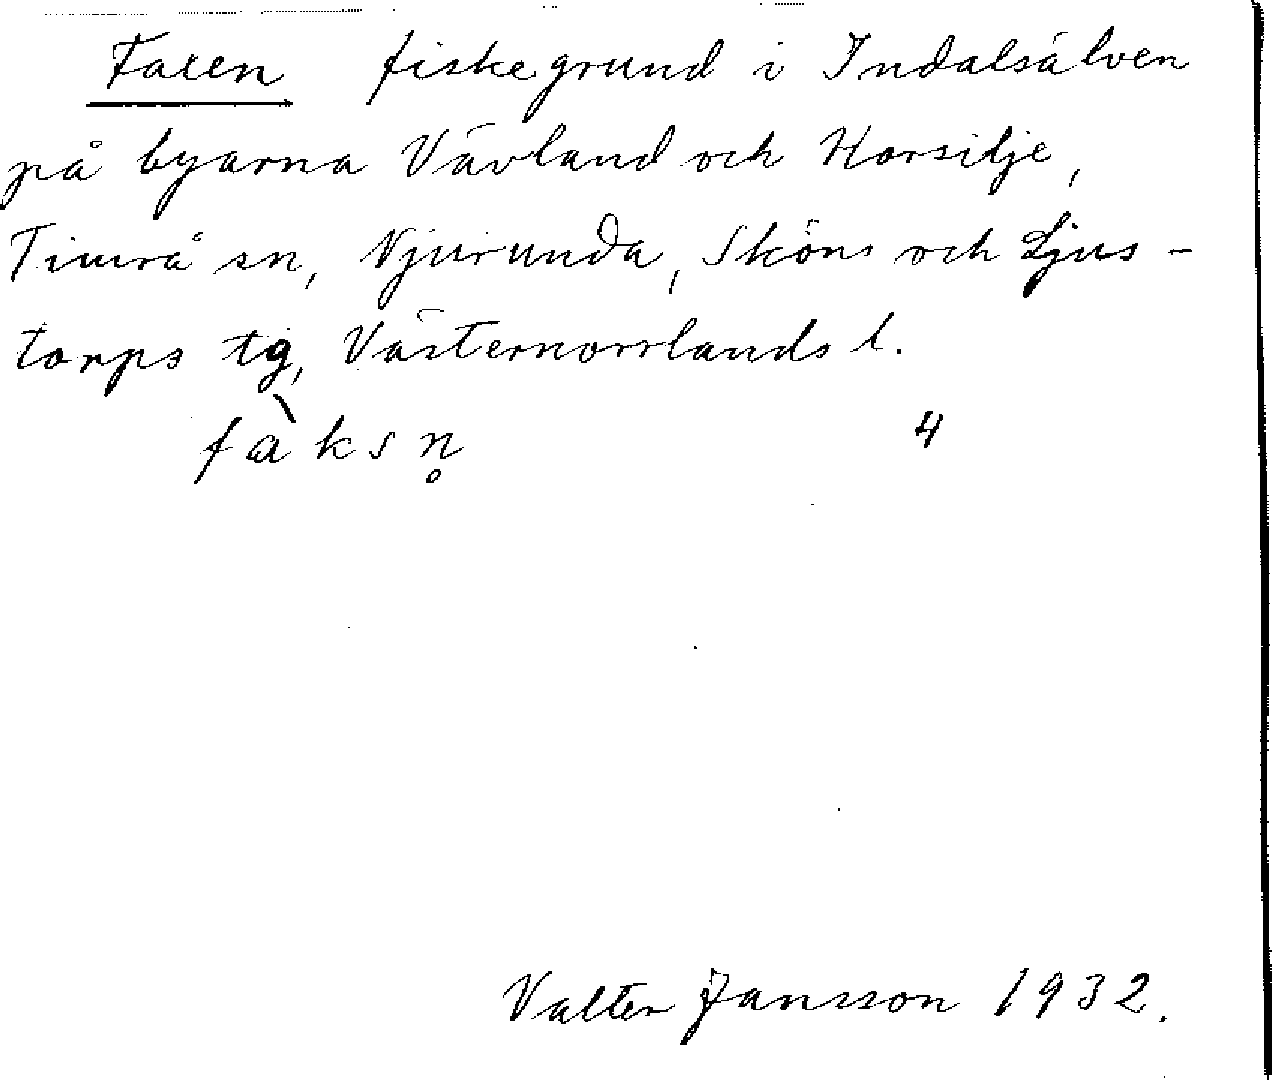 Faxen fiskegrund i Indalsälven
på byarna Vävland och Horsilje,
Timrå sn, Njurunda, Sköns och Ljus-
torps tg, Västernorrlands l.
fàksn̥ 4
Valter Jansson 1932.